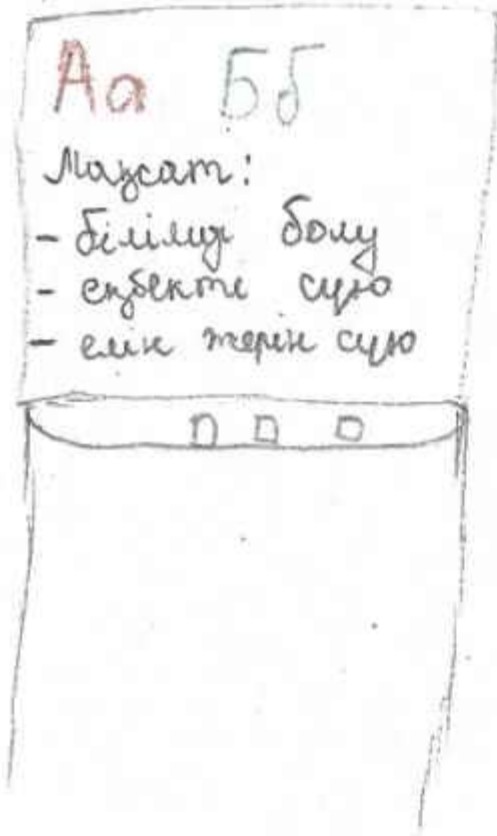 Аа Бб
Мақсат:
- білімді болу
- еңбекті сүю
- елін жерін сүю